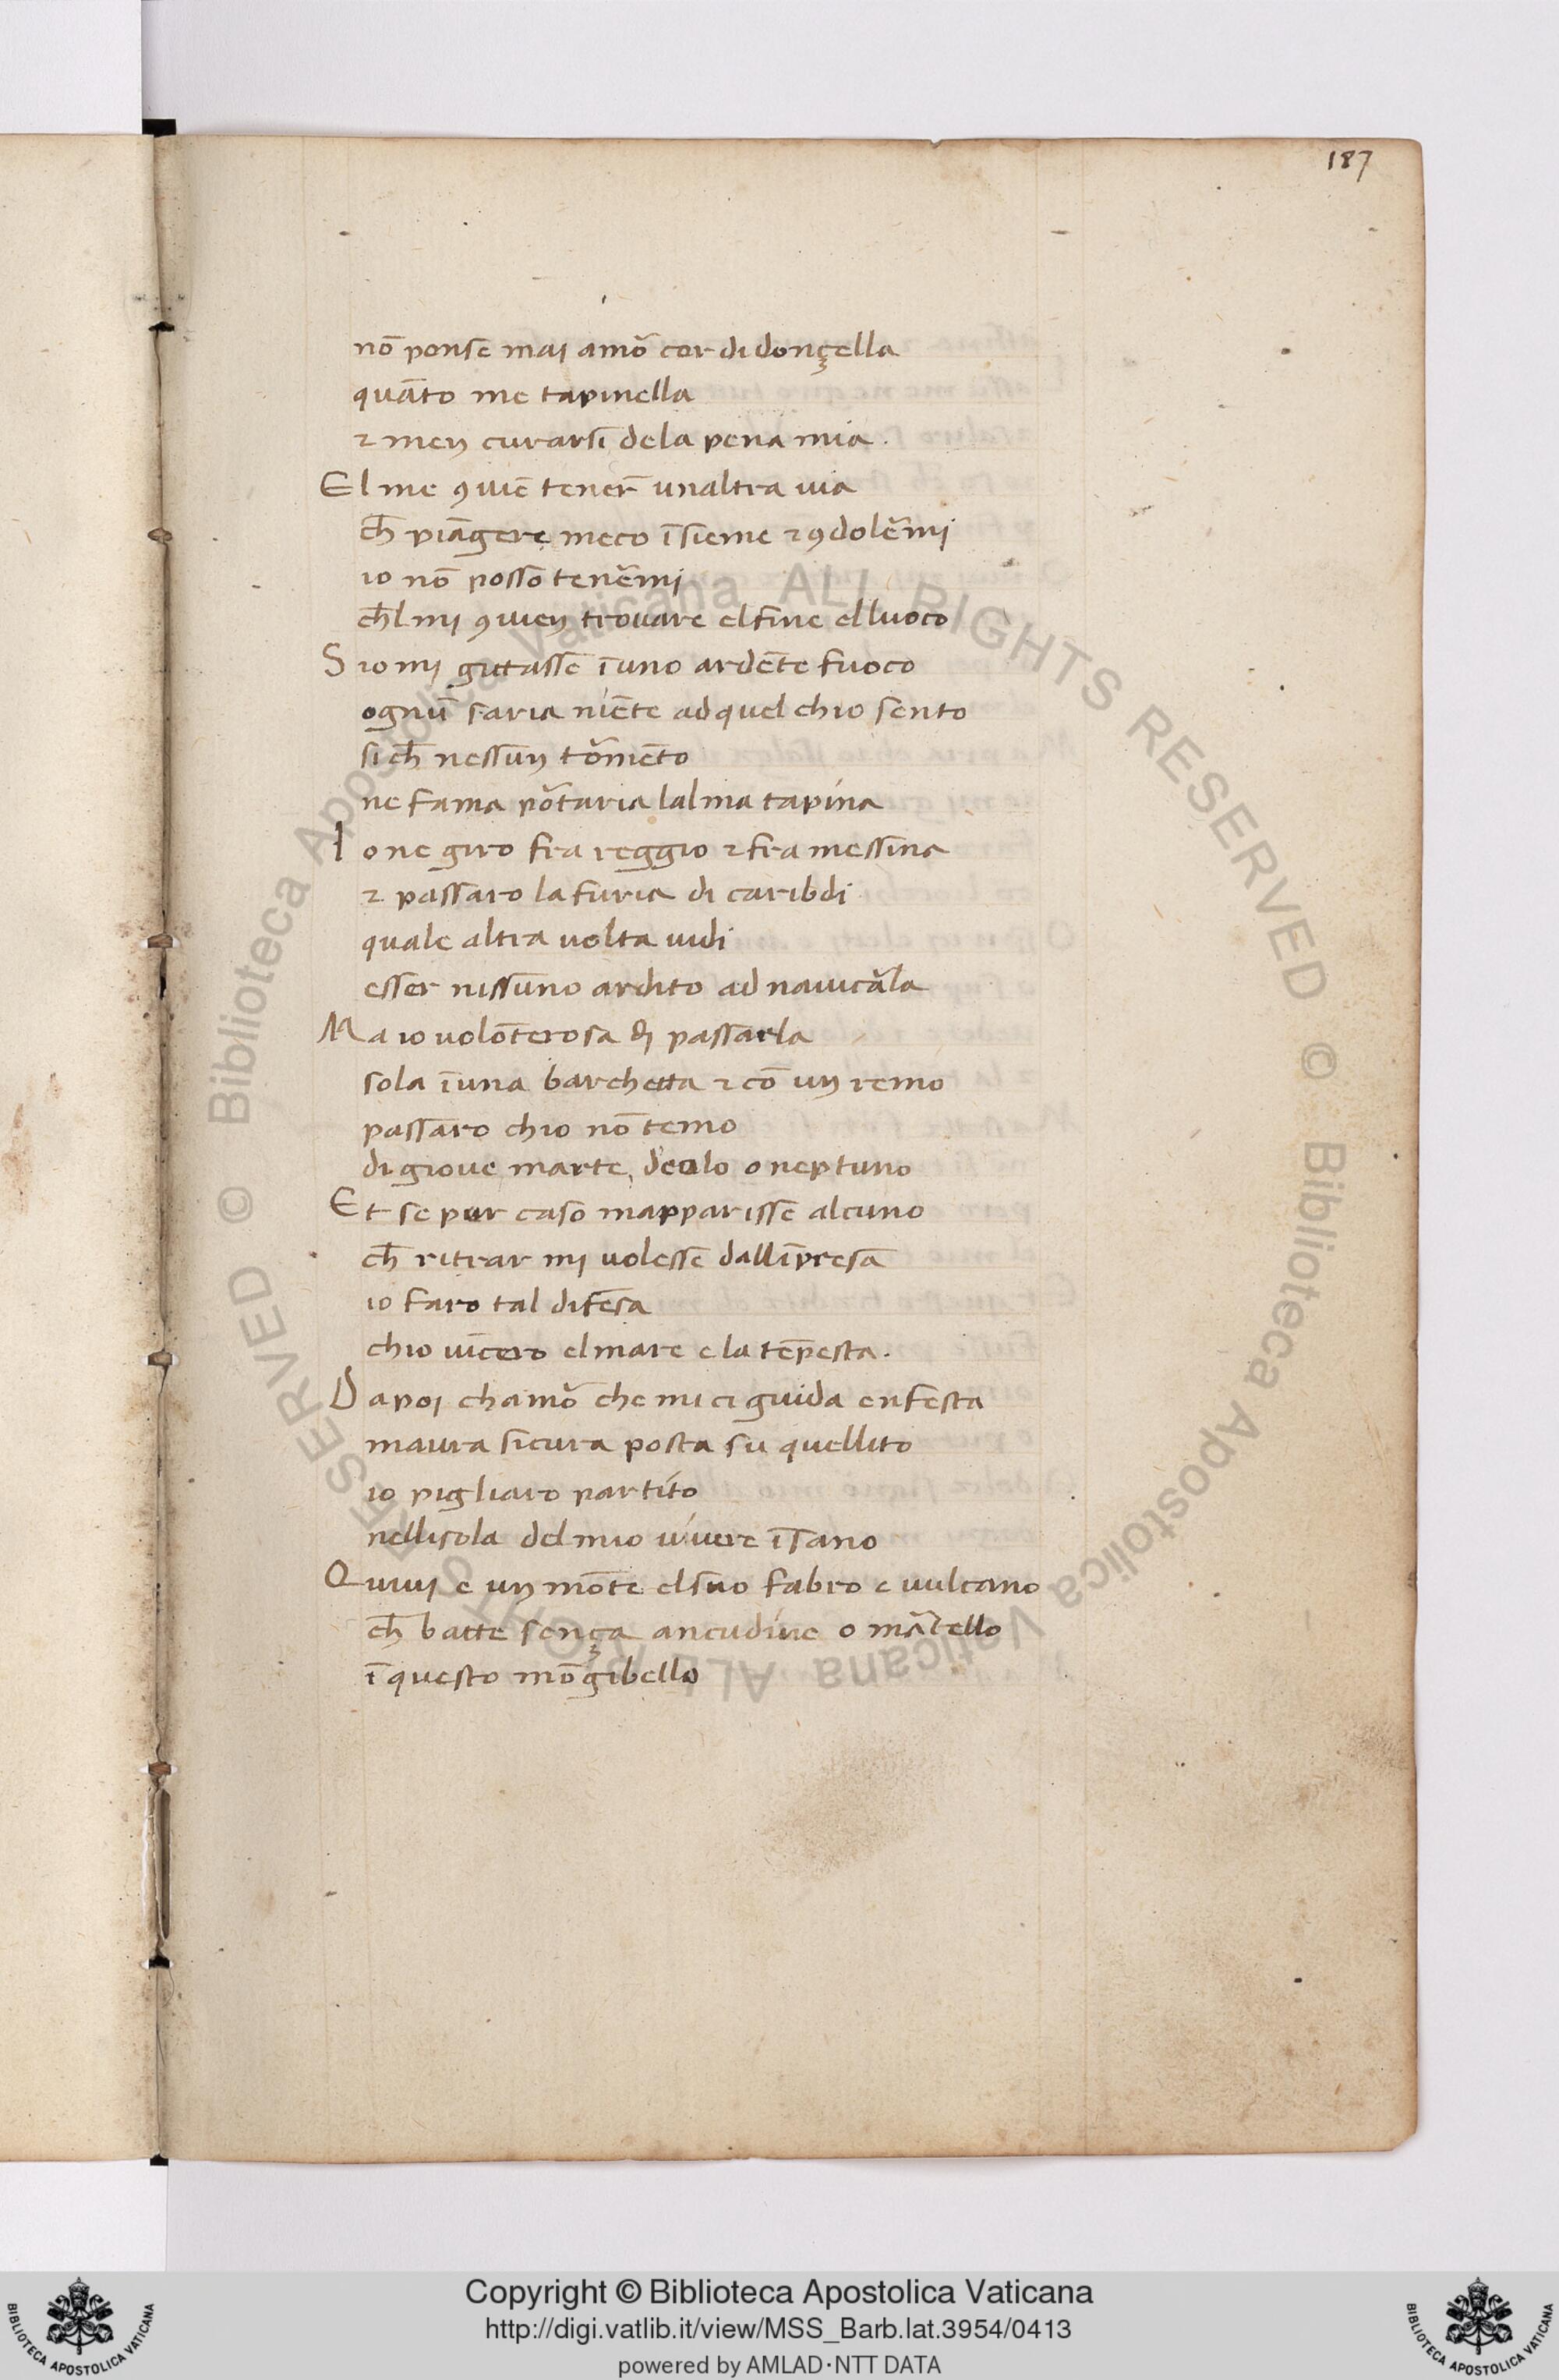 187
nō ponse mai amō cor di donçella
quāto me tapinella
⁊ men curarsi dela pena mia.
El me ꝯuiē tener̄ unaltra uia
ch̄ piāgere meco īsieme ⁊ ꝯdolēmi
io nō posso tenēmi
ch̄l mi ꝯuien trouare el fine el luoco
S io mi gittasse ī uno ardēte fuoco
ognū saria niēte ad quel chio sento
si ch̄ nessun tōmēto
ne fama pōtaria lalma tapina
I o ne giro fra reggio ⁊ fra messina
⁊ passaro la furia di caribdi
quale altra uolta uidi
esser nissuno ardito ad nauicāla
M a io uolōterosa di passarla
sola ī una barchetta ⁊ cō un remo
passaro chio nō temo
di gioue marte, deolo o neptuno
Et se per caso mapparisse alcuno
ch̄ ritrar mi uolesse dallīpresa
io faro tal difesa
chio uīcero el mare e la tēpesta.
D apoi chamō che mi ci guida enfesta
maura sicura posta su quellito
io pigliaro partito
nellisola del mio uiuere īsano
Quiui e un mōte el suo fabro e uulcano
ch̄ batte sença ancudine o mātello
ī questo mōgibello
Copyright © Biblioteca Apostolica Vaticana
http://digi.vatlib.it/view/MSS_Barb.lat.3954/0413
powered by AMLAD·NTT DATA
BIBLIOTECA APOSTOLICA VATICANA
BIBLIOTECA APOSTOLICA VATICANA
© Biblioteca Apostolica Vaticana ALL RIGHTS RESERVED
© Biblioteca Apostolica Vaticana ALL RIGHTS RESERVED